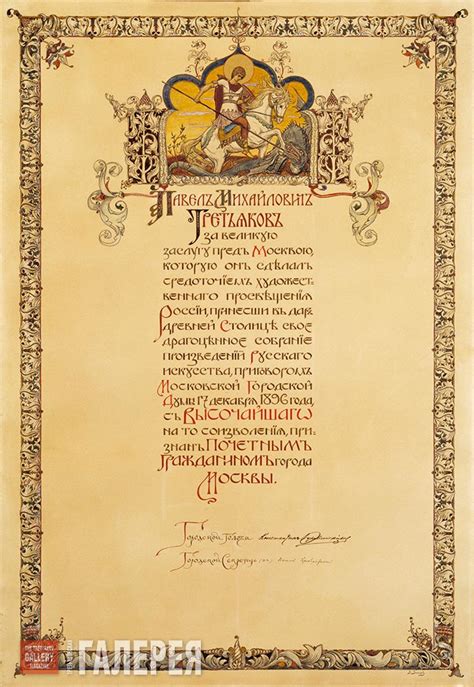 Павелъ Михайловичъ
Третьяковъ
за великую
заслугу предъ Москвою,
которую онъ сдѣлалъ
средоточіемъ художест-
веннаго просвѣщенія
Россіи, принесши въ даръ
Древней Столицѣ свое
драгоцѣнное собраніе
произведеній Русскаго
искусства, приговоромъ
Московской Городской
Думы 17 декабря 1896 года,
съ Высочайшаго
на то соизволенія, при-
знанъ Почетнымъ
Гражданиномъ города
Москвы.
Городской Голова
Городской Секретарь
THE TRETYAKOV
GALLERY
MAGAZINE
ГАЛЕРЕЯ